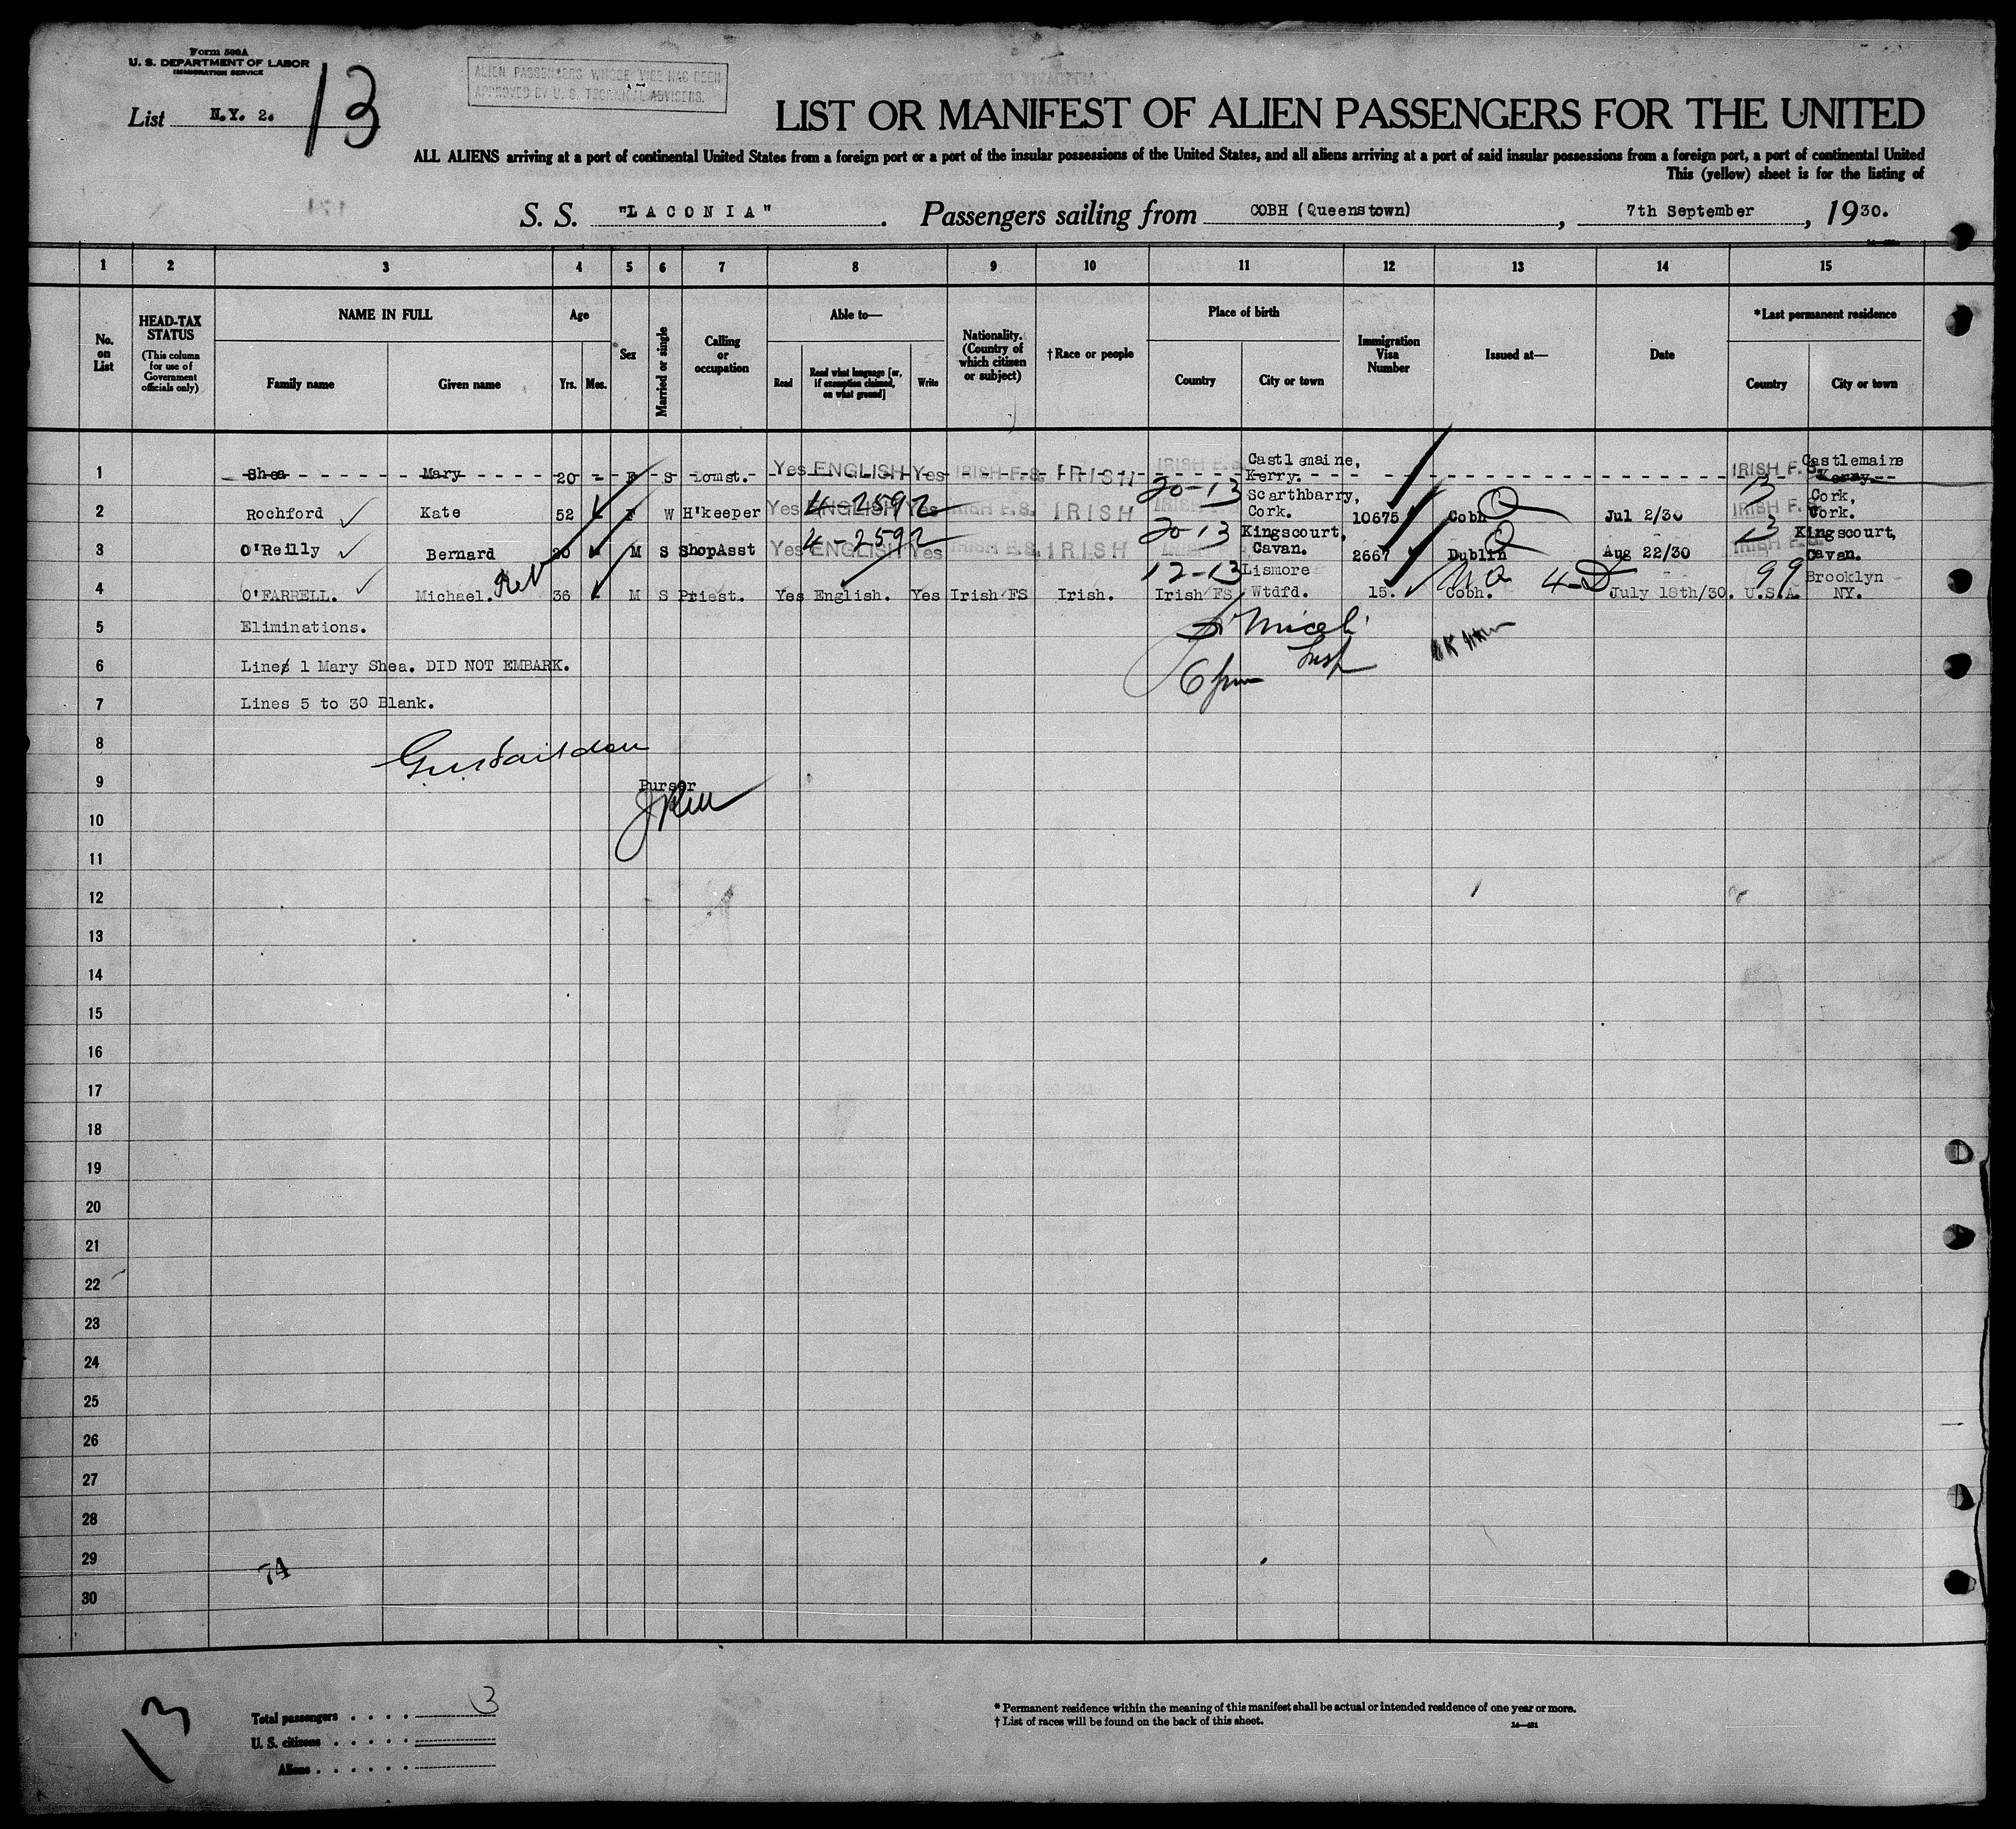 Form 500A
U. S. DEPARTMENT OF LABOR
IMMIGRATION SERVICE
List N.Y. 2.
13
ALIEN PASSENGERS WHOSE VISE HAS BEEN
APPROVED BY U. S. TECHNICAL ADVISERS.
LIST OR MANIFEST OF ALIEN PASSENGERS FOR THE UNITED
ALL ALIENS arriving at a port of continental United States from a foreign port or a port of the insular possessions of the United States, and all aliens arriving at a port of said insular possessions from a foreign port, a port of continental United
This (yellow) sheet is for the listing of
S. S. "LACONIA". Passengers sailing from COBH (Queenstown), 7th September, 1930.
1 2 3 4 5 6 7 8 9 10 11 12 13 14 15
No. on List
HEAD-TAX STATUS (This column for use of Government officials only)
NAME IN FULL
Family name Given name
Age
Yrs. Mos.
Sex
Married or single
Calling or occupation
Able to—
Read Read what language [or, if exemption claimed, on what ground] Write
Nationality. (Country of which citizen or subject)
† Race or people
Place of birth
Country City or town
Immigration Visa Number
Issued at—
Date
* Last permanent residence
Country City or town
1 Shea Mary 20 - F S Domst. Yes ENGLISH Yes IRISH F.S. IRISH IRISH F.S. Castlemaine, Kerry. IRISH F.S. Castlemaine Kerry.
2 Rochford Kate 52 F W H'keeper Yes ENGLISH Yes 4-2592 IRISH F.S. IRISH 20-13 Scarthbarry, Cork. 10675 Cobh Q Jul 2/30 13 IRISH F.S. Cork, Cork.
3 O'Reilly Bernard 20 M S ShopAsst Yes ENGLISH Yes 4-2592 IRISH F.S. IRISH 20-13 Kingscourt, Cavan. 2667 Dublin Q Aug 22/30 13 IRISH F.S. Kingscourt, Cavan.
4 O'FARRELL. Michael. Rev 36 M S Priest. Yes English. Yes Irish FS Irish. 12-13 Irish FS Lismore Wtdfd. 15. Cobh. NQ 4-D July 18th/30. 99 U.S.A. Brooklyn NY.
5 Eliminations.
6 Lines 1 Mary Shea. DID NOT EMBARK.
7 Lines 5 to 30 Blank.
Insp
8
9 Purser
10
11
12
13
14
15
16
17
18
19
20
21
22
23
24
25
26
27
28
29
74
30
13
Total passengers . . . . 3
U. S. citizens . . . . .
Aliens . . . . . .
* Permanent residence within the meaning of this manifest shall be actual or intended residence of one year or more.
† List of races will be found on the back of this sheet.